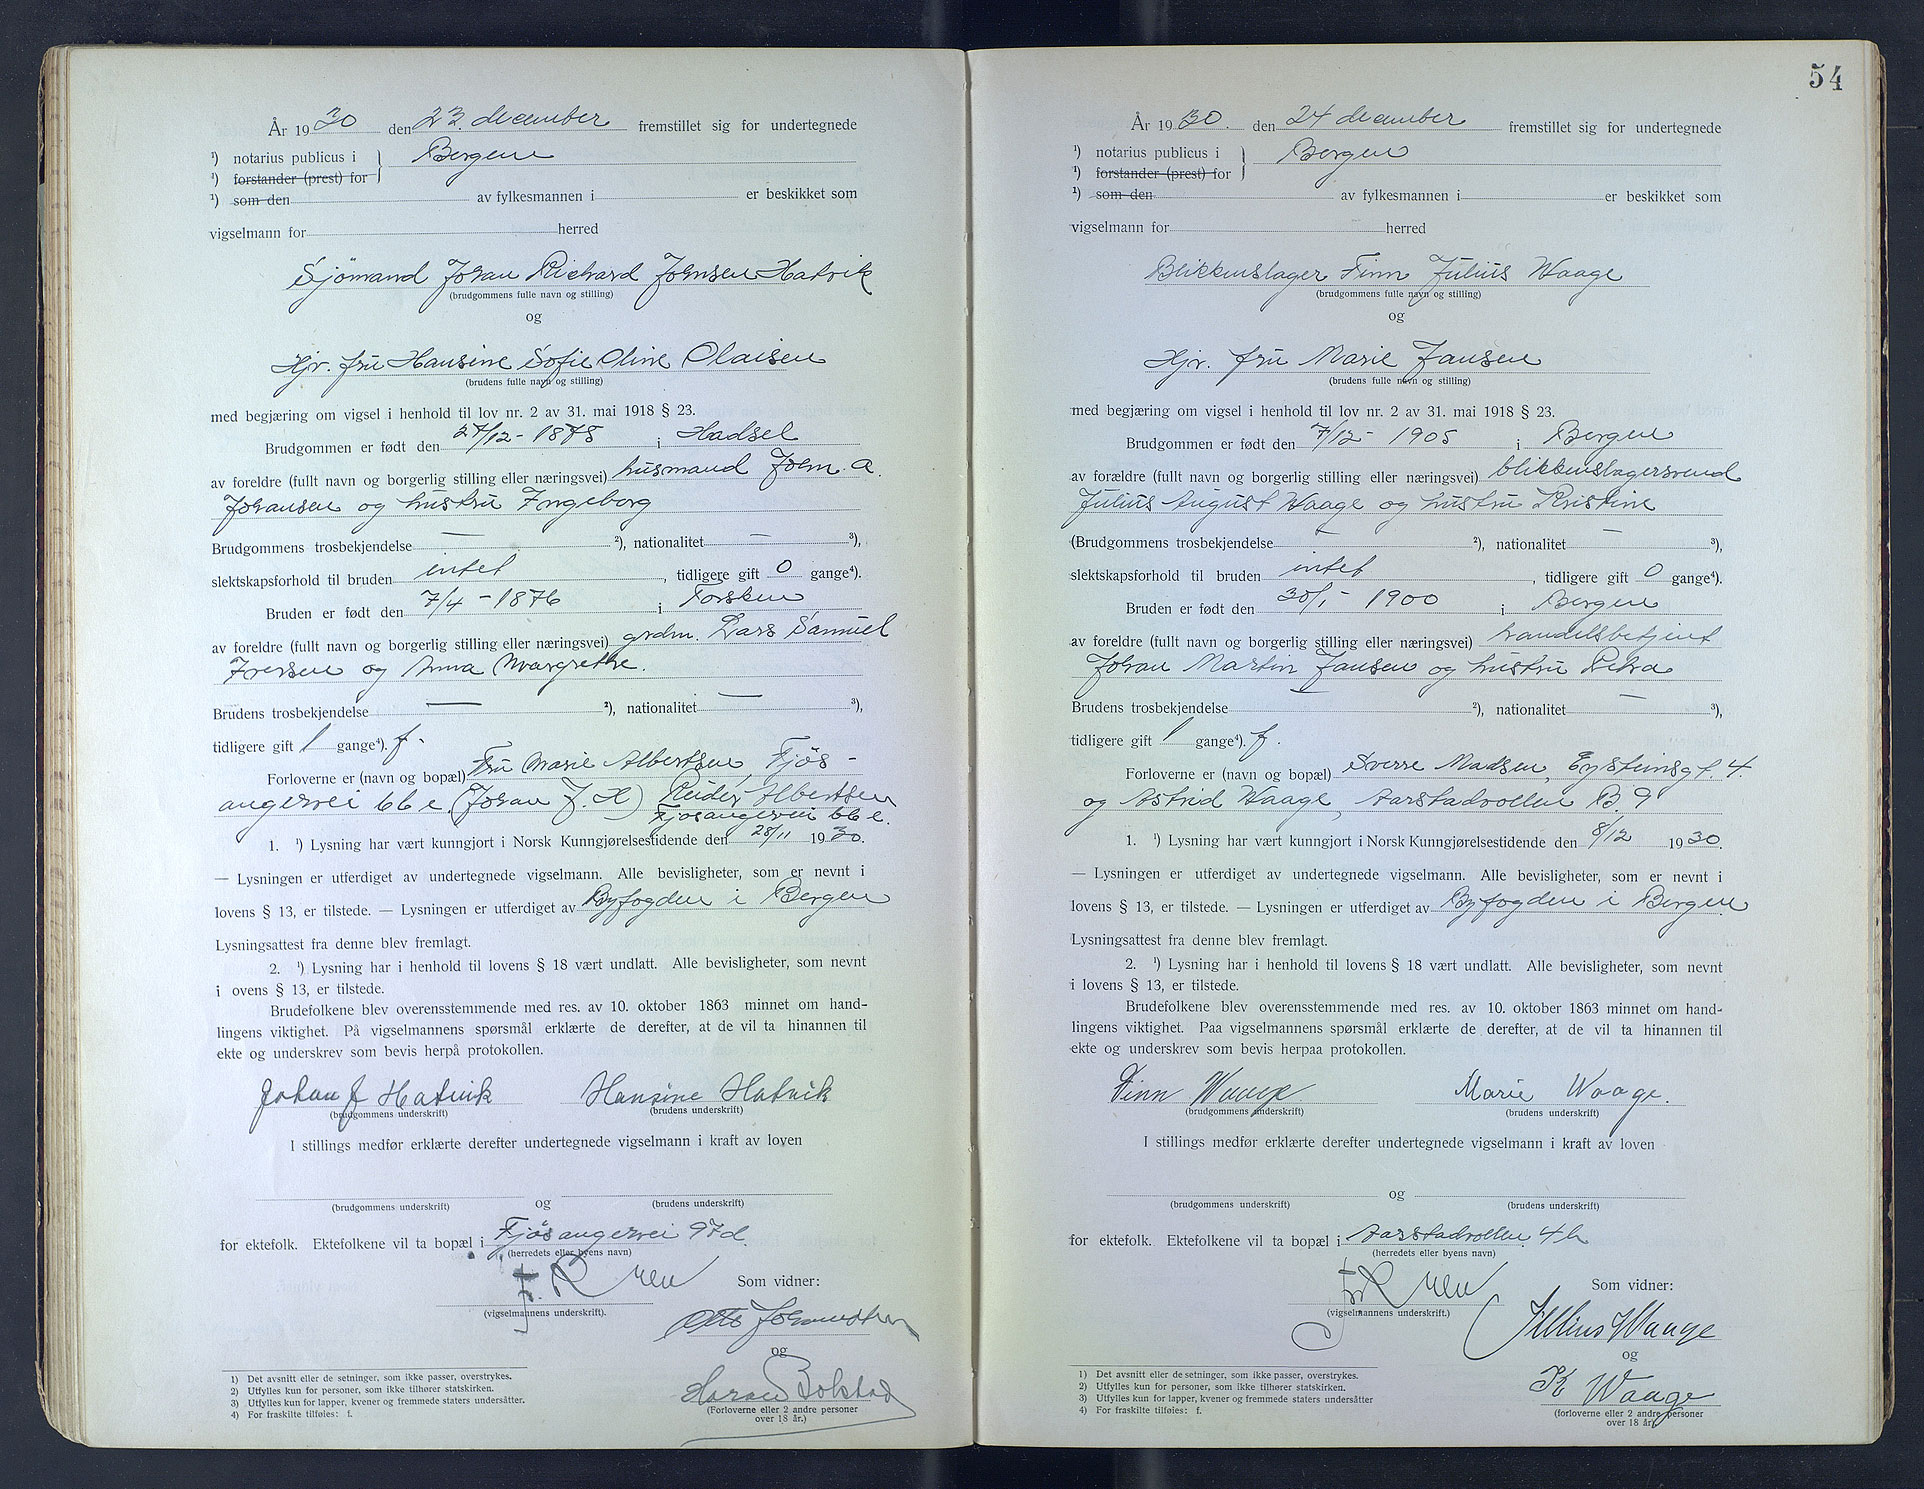 År 1930 den 23. december fremstillet sig for undertegnede
¹) notarius publicus i } Bergen
¹) forstander (prest) for
¹) som den av fylkesmannen i er beskikket som
vigselmann for herred
Sjömand Johan Richard Johnsen Hatvik
(brudgommens fulle navn og stilling)
og
Hjr. fru Hansine Sofie Oline Olaisen
(brudens fulle navn og stilling)
med begjæring om vigsel i henhold til lov nr. 2 av 31. mai 1918 § 23.
Brudgommen er født den 27/12 - 1878 i Hadsel
av forældre (fullt navn og borgerlig stilling eller næringsvei) husmand John. A.
Johansen og hustru Ingeborg
Brudgommens trosbekjendelse — ²), nationalitet — ³),
slektskapsforhold til bruden intet, tidligere gift 0 gange⁴).
Bruden er født den 7/4 - 1876 i Torsken
av foreldre (fullt navn og borgerlig stilling eller næringsvei) grdm. Lars Samuel
Iversen og Anna Margrethe.
Brudens trosbekjendelse — ²), nationalitet — ³),
tidligere gift 1 gange⁴). f.
Forloverne er (navn og bopæl) Fru Marie Albertsen, Fjös-
angervei 66 e (Johan J. H) Reidar Albertsen
Fjosangervei 66 e.
1. ¹) Lysning har vært kunngjort i Norsk Kunngjørelsestidende den 28/11 1930.
— Lysningen er utferdiget av undertegnede vigselmann. Alle bevisligheter, som er nevnt i
lovens § 13, er tilstede. — Lysningen er utferdiget av Byfogden i Bergen
Lysningsattest fra denne blev fremlagt.
2. ¹) Lysning har i henhold til lovens § 18 vært undlatt. Alle bevisligheter, som nevnt
i ovens § 13, er tilstede.
Brudefolkene blev overensstemmende med res. av 10. oktober 1863 minnet om hand-
lingens viktighet. På vigselmannens spørsmål erklærte de derefter, at de vil ta hinannen til
ekte og underskrev som bevis herpå protokollen.
Johan J Hatvik Hansine Hatvik
(brudgommens underskrift) (brudens underskrift)
I stillings medfør erklærte derefter undertegnede vigselmann i kraft av loven
og
(brudgommens underskrift) (brudens underskrift)
for ektefolk. Ektefolkene vil ta bopæl i Fjösangervei 97d.
(herredets eller byens navn)
Som vidner:
(vigselmannens underskrift).
Otto
og
Bolstad
(Forloverne eller 2 andre personer
over 18 år.)
1) Det avsnitt eller de setninger, som ikke passer, overstrykes.
2) Utfylles kun for personer, som ikke tilhører statskirken.
3) Utfylles kun for lapper, kvener og fremmede staters undersåtter.
4) For fraskilte tilføies: f.
54
År 1930. den 24 december fremstillet sig for undertegnede
¹) notarius publicus i } Bergen
¹) forstander (prest) for
¹) som den av fylkesmannen i er beskikket som
vigselmann for herred
Blikkenslager Finn Julius Waage
(brudgommens fulle navn og stilling)
og
Hjr. fru Marie Jansen
(brudens fulle navn og stilling)
med begjæring om vigsel i henhold til lov nr. 2 av 31. mai 1918 § 23.
Brudgommen er født den 7/12 - 1905 i Bergen
av forældre (fullt navn og borgerlig stilling eller næringsvei) blikkenslagersvend
Julius August Waage og hustru Kristine
(Brudgommens trosbekjendelse — ²), nationalitet — ³),
slektskapsforhold til bruden intet, tidligere gift 0 gange⁴).
Bruden er født den 30/1 - 1900 i Bergen
av foreldre (fullt navn og borgerlig stilling eller næringsvei) handelsbetjent
Johan Martin Jansen og hustru Petra
Brudens trosbekjendelse — ²), nationalitet — ³),
tidligere gift 1 gange⁴). f.
Forloverne er (navn og bopæl) Sverre Madsen, Eysteinsgt. 4.
og Astrid Waage, Aarstadvollen B. 9
1. ¹) Lysning har vært kunngjort i Norsk Kunngjørelsestidende den 8/12 1930.
— Lysningen er utferdiget av undertegnede vigselmann. Alle bevisligheter, som er nevnt i
lovens § 13, er tilstede. — Lysningen er utferdiget av Byfogden i Bergen
Lysningsattest fra denne blev fremlagt.
2. ¹) Lysning har i henhold til lovens § 18 vært undlatt. Alle bevisligheter, som nevnt
i lovens § 13, er tilstede.
Brudefolkene blev overensstemmende med res. av 10. oktober 1863 minnet om hand-
lingens viktighet. Paa vigselmannens spørsmål erklærte de derefter, at de vil ta hinannen til
ekte og underskrev som bevis herpaa protokollen.
Finn Waage Marie Waage.
(brudgommens underskrift) (brudens underskrift)
I stillings medfør erklærte derefter undertegnede vigselmann i kraft av loven
og
(brudgommens underskrift) (brudens underskrift)
for ektefolk. Ektefolkene vil ta bopæl i Aarstadvollen 4 b
(herredets eller byens navn)
Som vidner:
(vigselmannens underskrift.)
Julius Waage
og
K Waage
(forloverne eller 2 andre personer
over 18 år)
1) Det avsnitt eller de setninger, som ikke passer, overstrykes.
2) Utfylles kun for personer, som ikke tilhører statskirken.
3) Utfylles kun for lapper, kvener og fremmede staters undersåtter
4) For fraskilte tilføies: f.